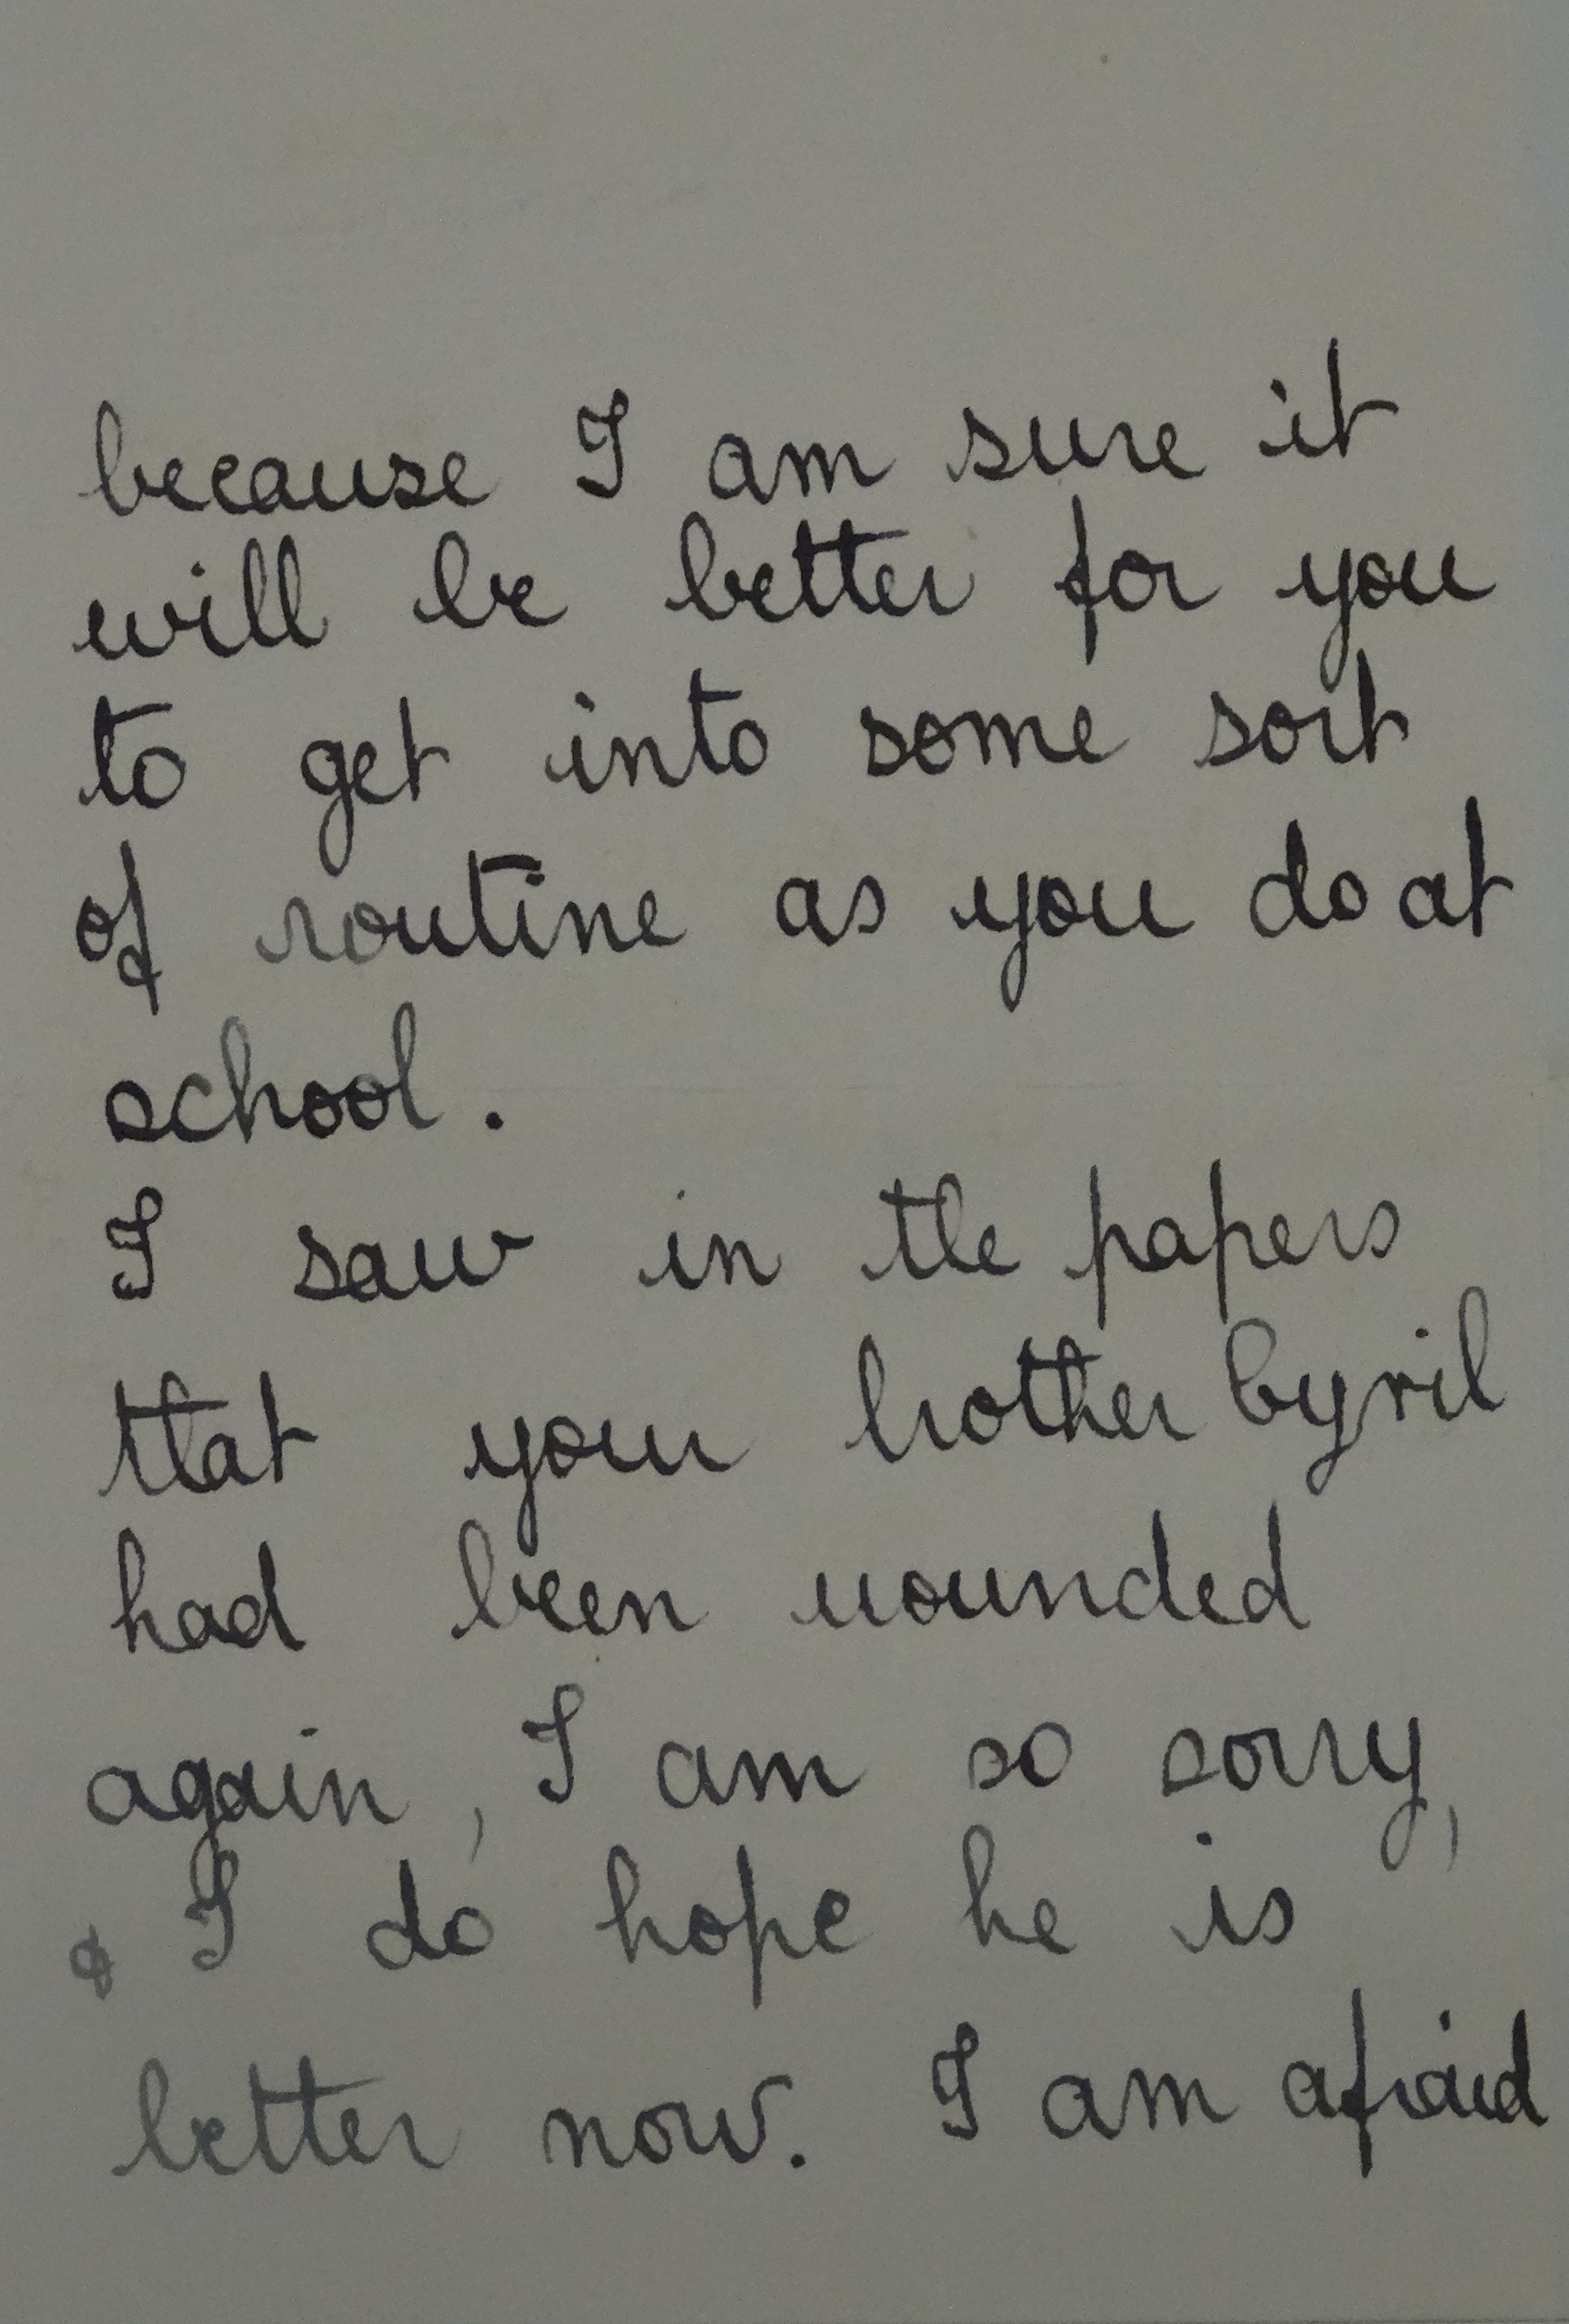 because I am sure it
will be better for you
to get into some sort
of routine as you do at
school.
I saw in the papers
that your brother Cyril
had been wounded
again, I am so sorry,
& I do hope he is
better now. I am afraid